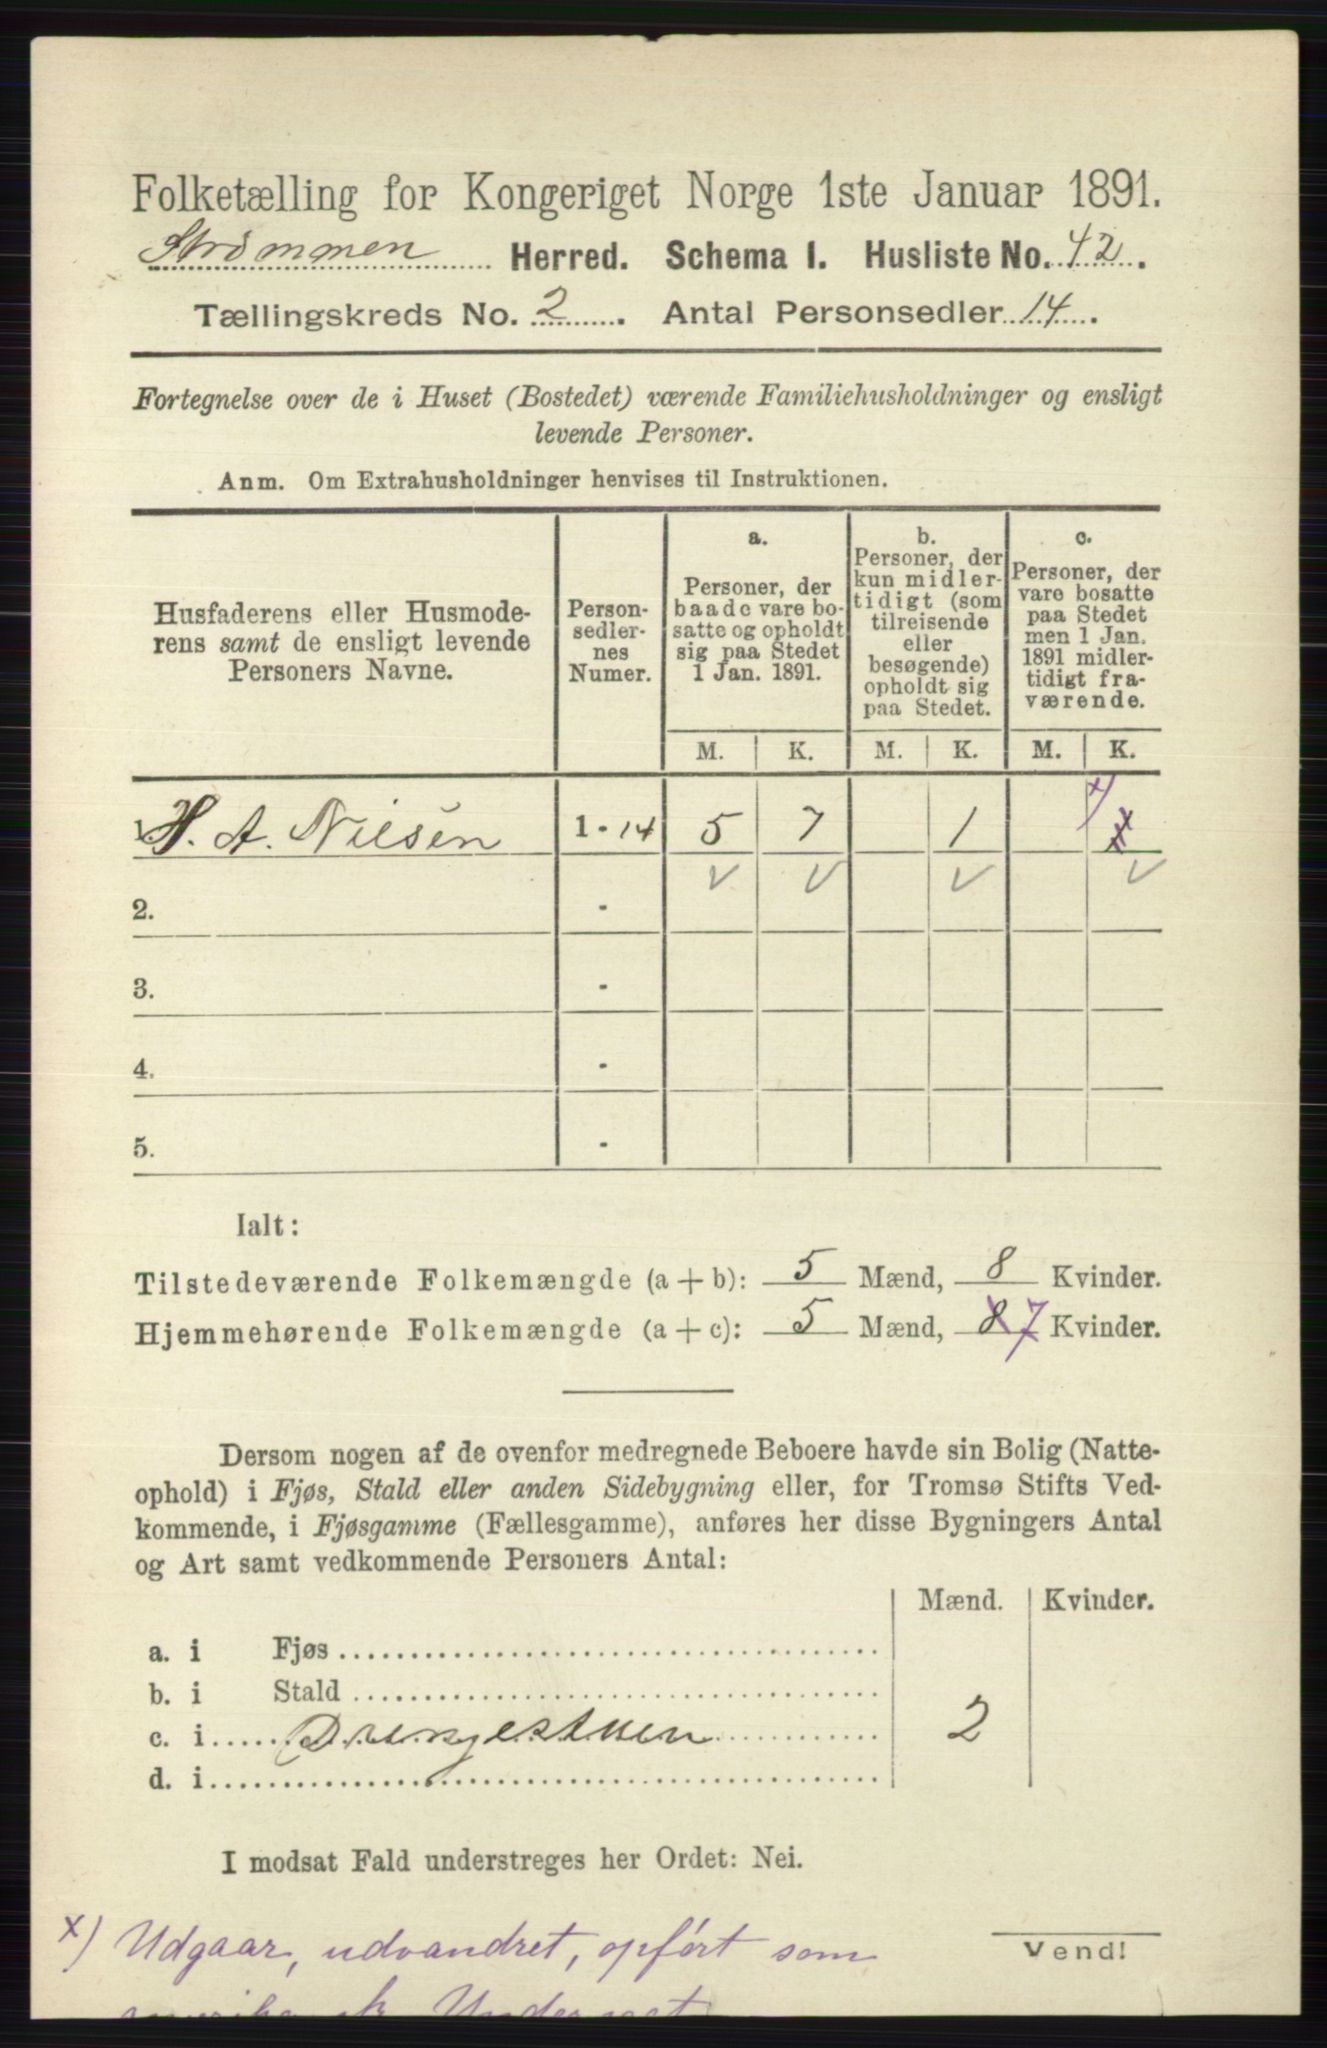 Folketælling for Kongeriget Norge 1ste Januar 1891.
Strömmen Herred. Schema I. Husliste No. 42.
Tællingskreds No. 2. Antal Personsedler 14.
Fortegnelse over de i Huset (Bostedet) værende Familiehusholdninger og ensligt
levende Personer.
Anm. Om Extrahusholdninger henvises til Instruktionen.
Husfaderens eller Husmode-
rens samt de ensligt levende
Personers Navne.
Person-
sedler-
nes
Numer.
a.
Personer, der
baade vare bo-
satte og opholdt
sig paa Stedet
1 Jan. 1891.
b.
Personer, der
kun midler-
tidigt (som
tilreisende
eller
besøgende)
opholdt sig
paa Stedet.
c.
Personer, der
vare bosatte
paa Stedet
men 1 Jan.
1891 midler-
tidigt fra-
værende.
M. K. M. K. M. K.
1. H. A. Nilsen 1 - 14 5 7 1 x)
2. -
3. -
4. -
5. -
Ialt:
Tilstedeværende Folkemængde (a + b): 5 Mænd, 8 Kvinder.
Hjemmehørende Folkemængde (a + c): 5 Mænd, 8 7 Kvinder.
Dersom nogen af de ovenfor medregnede Beboere havde sin Bolig (Natte-
ophold) i Fjøs, Stald eller anden Sidebygning eller, for Tromsø Stifts Ved-
kommende, i Fjøsgamme (Fællesgamme), anføres her disse Bygningers Antal
og Art samt vedkommende Personers Antal:
Mænd. Kvinder.
a. i Fjøs
b. i Stald
c. i Drengestuen 2
d. i
I modsat Fald understreges her Ordet: Nei.
x) Udgaar, udvandret, opført som
Vend!